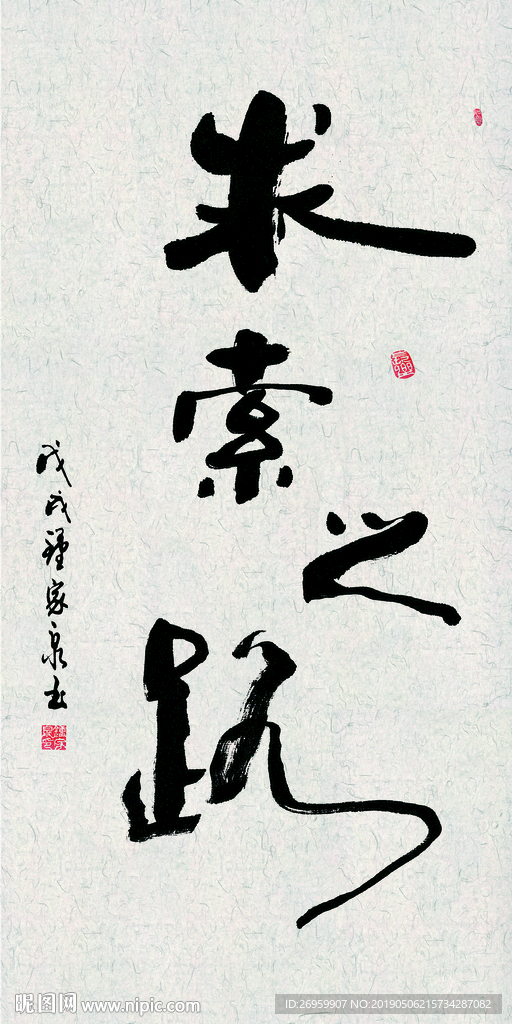 求索之路
戊戌钟家泉书
昵图网 www.nipic.com
ID:26959907 NO:20190506215734287082